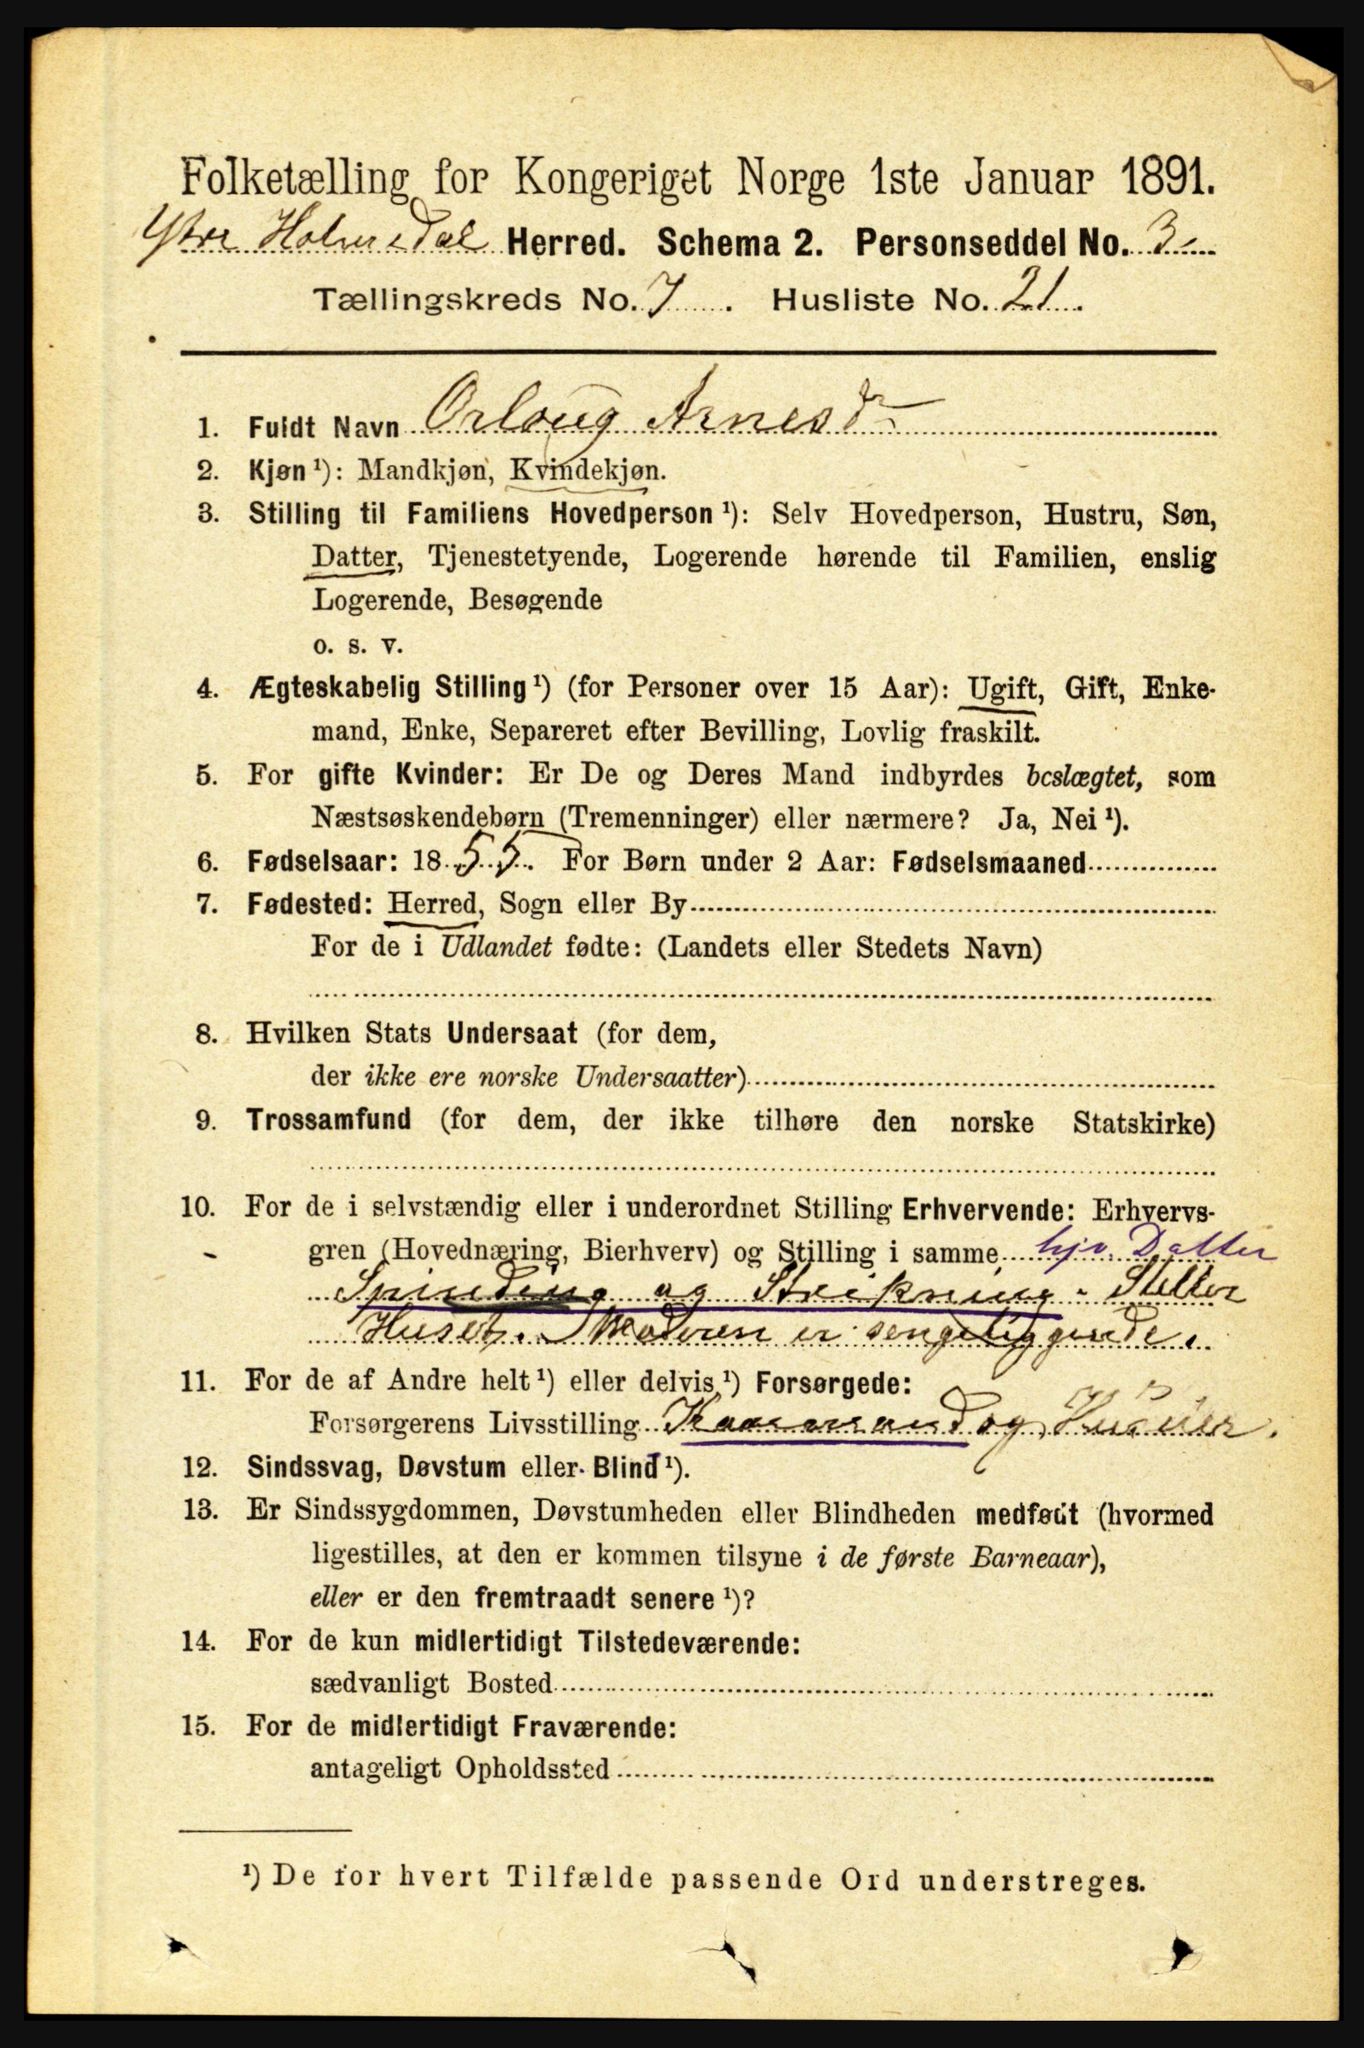 Folketælling for Kongeriget Norge 1ste Januar 1891.
Ytre Holmedal Herred. Schema 2. Personseddel No. 3
Tællingskreds No. 7. Husliste No. 21.
1. Fuldt Navn Orloug Arnesdr
2. Kjøn ¹): Mandkjøn, Kvindekjøn.
3. Stilling til Familiens Hovedperson ¹): Selv Hovedperson, Hustru, Søn,
Datter, Tjenestetyende, Logerende hørende til Familien, enslig
Logerende, Besøgende
o. s. v.
4. Ægteskabelig Stilling ¹) (for Personer over 15 Aar): Ugift, Gift, Enke-
mand, Enke, Separeret efter Bevilling, Lovlig fraskilt.
5. For gifte Kvinder: Er De og Deres Mand indbyrdes beslægtet, som
Næstsøskendebørn (Tremenninger) eller nærmere? Ja, Nei ¹).
6. Fødselsaar: 1855. For Børn under 2 Aar: Fødselsmaaned
7. Fødested: Herred, Sogn eller By
For de i Udlandet fødte: (Landets eller Stedets Navn)
8. Hvilken Stats Undersaat (for dem,
der ikke ere norske Undersaatter)
9. Trossamfund (for dem, der ikke tilhøre den norske Statskirke)
10. For de i selvstændig eller i underordnet Stilling Erhvervende: Erhvervs-
gren (Hovednæring, Bierhverv) og Stilling i samme hjv. Datter
Spinding og Strikning. Steller
Huset. Moderen er sengeliggende.
11. For de af Andre helt ¹) eller delvis ¹) Forsørgede:
Forsørgerens Livsstilling Kaarmand og Huseier.
12. Sindssvag, Døvstum eller Blind ¹).
13. Er Sindssygdommen, Døvstumheden eller Blindheden medfødt (hvormed
ligestilles, at den er kommen tilsyne i de første Barneaar),
eller er den fremtraadt senere ¹)?
14. For de kun midlertidigt Tilstedeværende:
sædvanligt Bosted
15. For de midlertidigt Fraværende:
antageligt Opholdssted
¹) De for hvert Tilfælde passende Ord understreges.